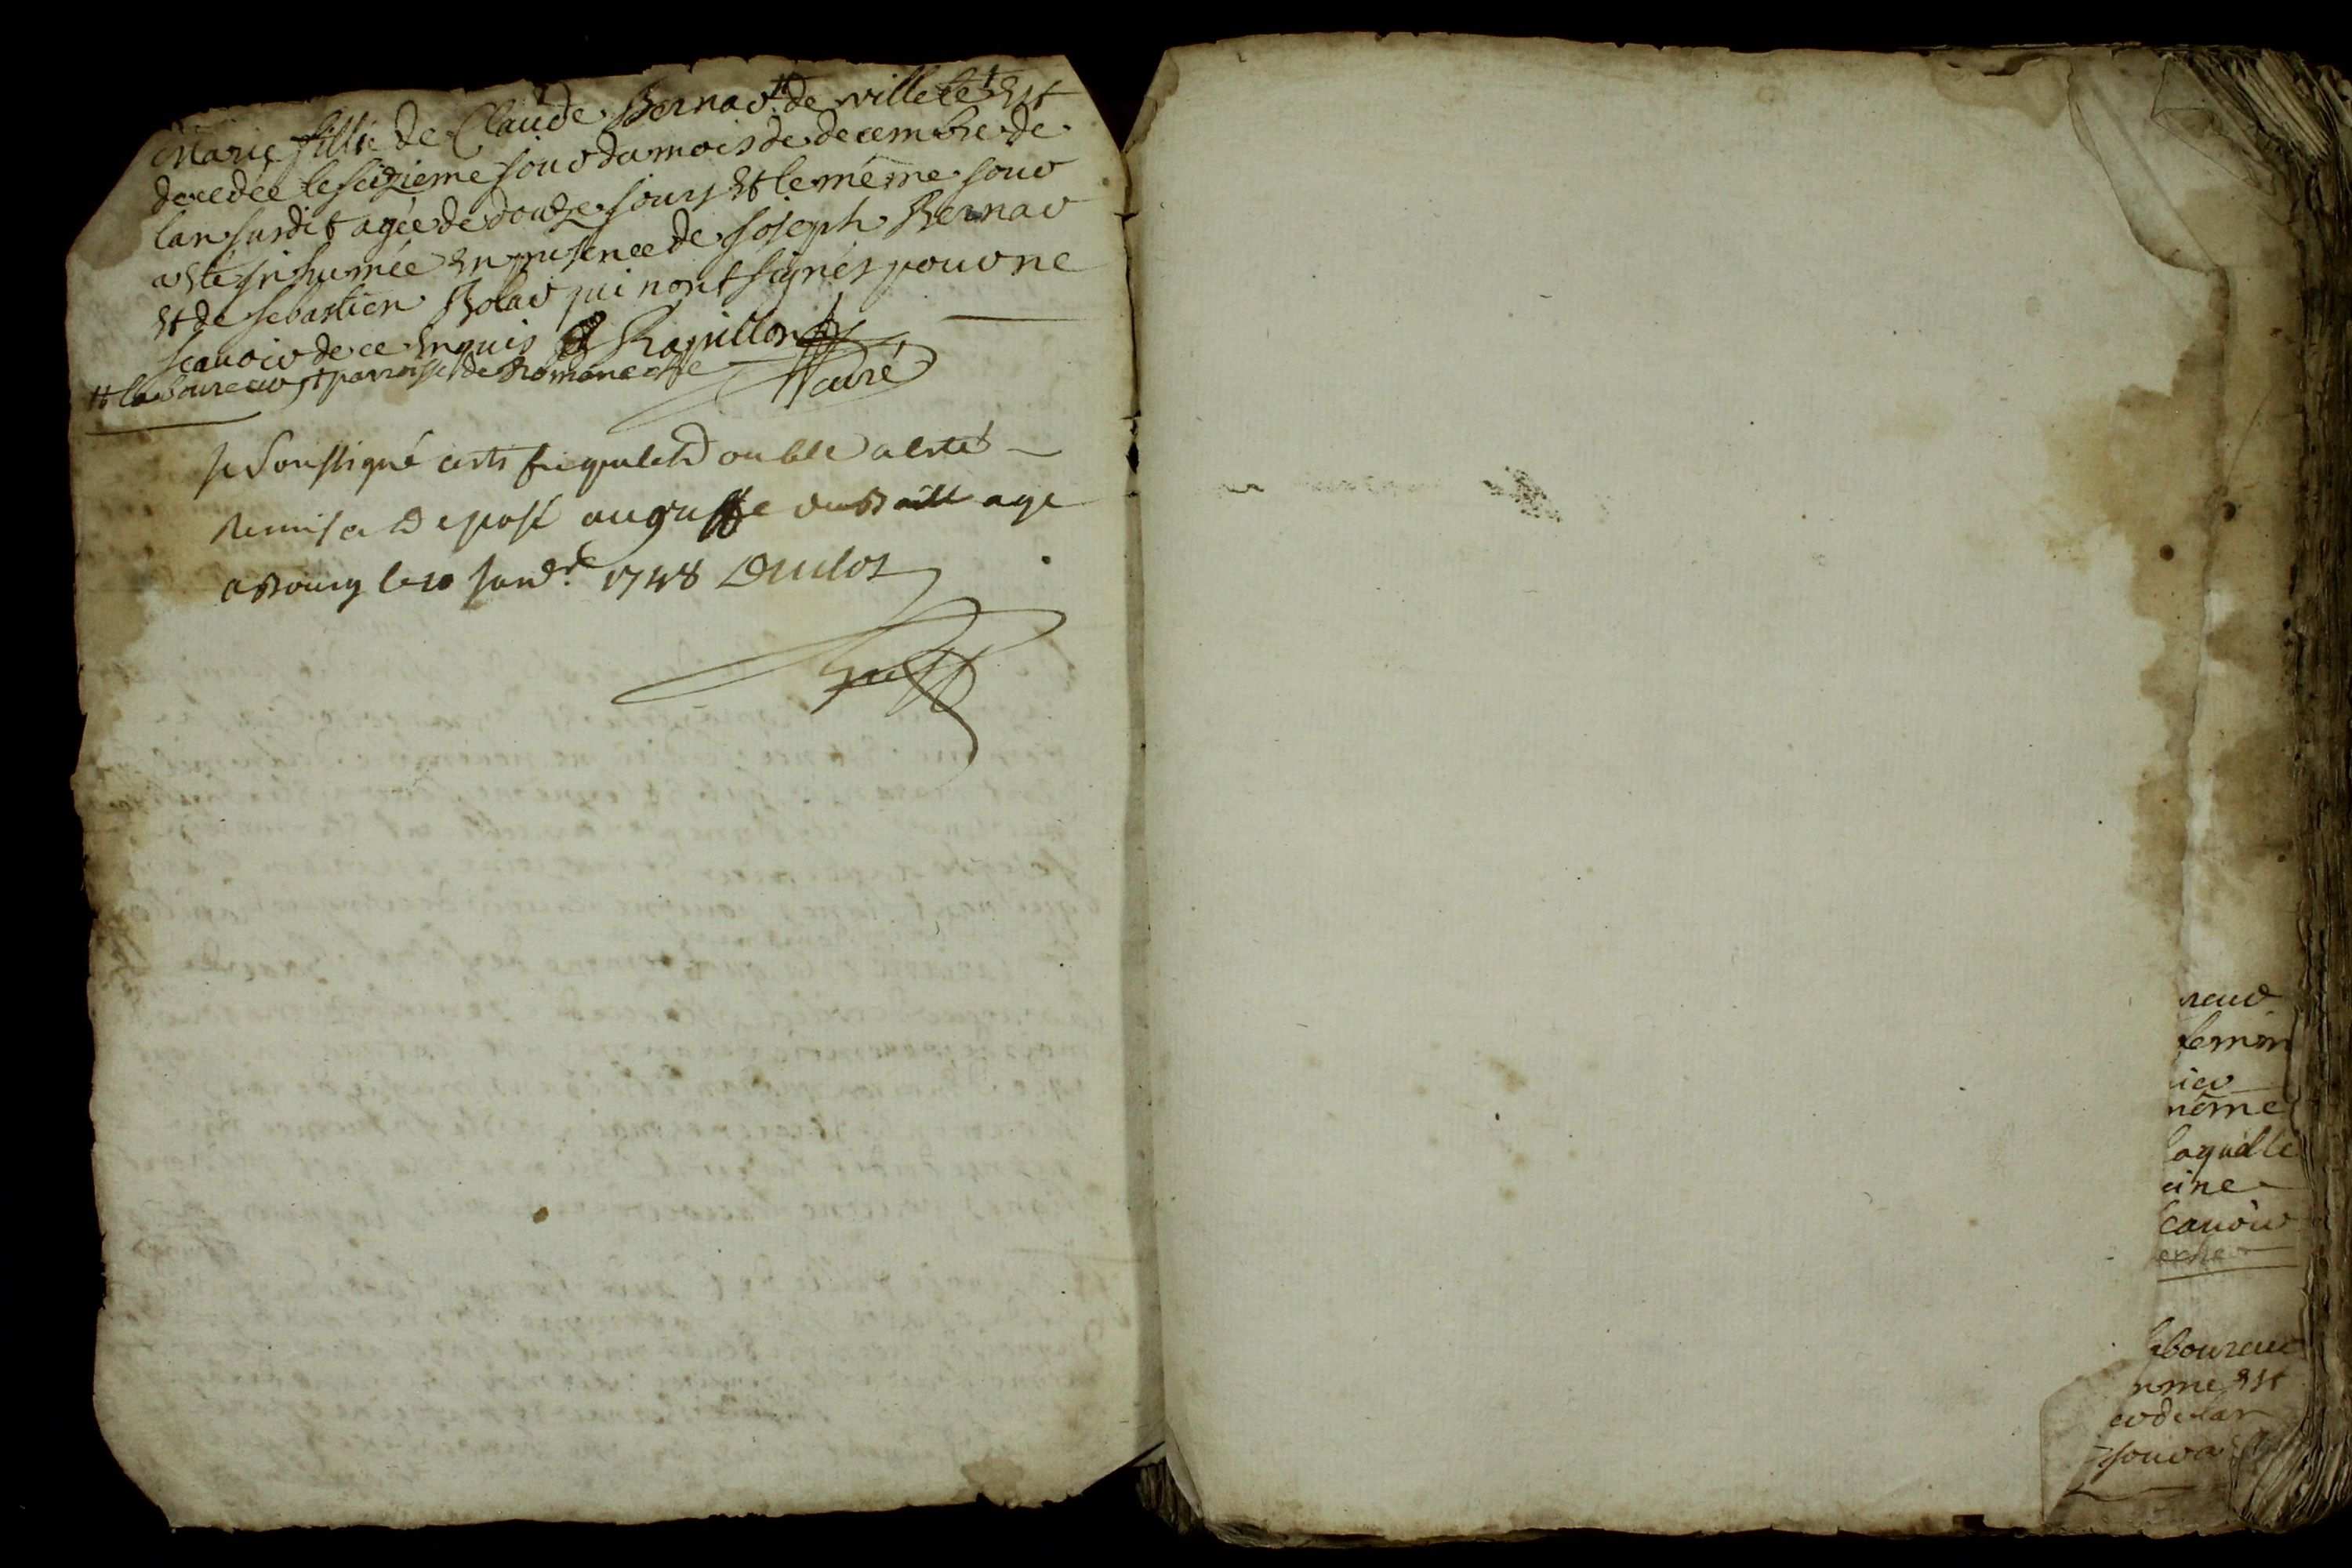 Marie fillie de Claude Bernar # de villete † est
decedée le seizieme jour du mois de decembre de
lan susdit agée de douze jours et le même jour
a eté inhumée en presence de joseph Bernar
et de sebastien Bolar qui nont signés pour ne
scavoir de ce enquis Rapillon
# laboureur † parroisse de Romaneche
curé
je soussigné certifie que le double a esté
remis et deposé au greffe du Bailliage
a Bourg le 10 janv.r 1748 Duclos
greff
reur
femm
ier
nôme
laquelle
eine
scavoir
laboureur
nme est
er de lan
jour a